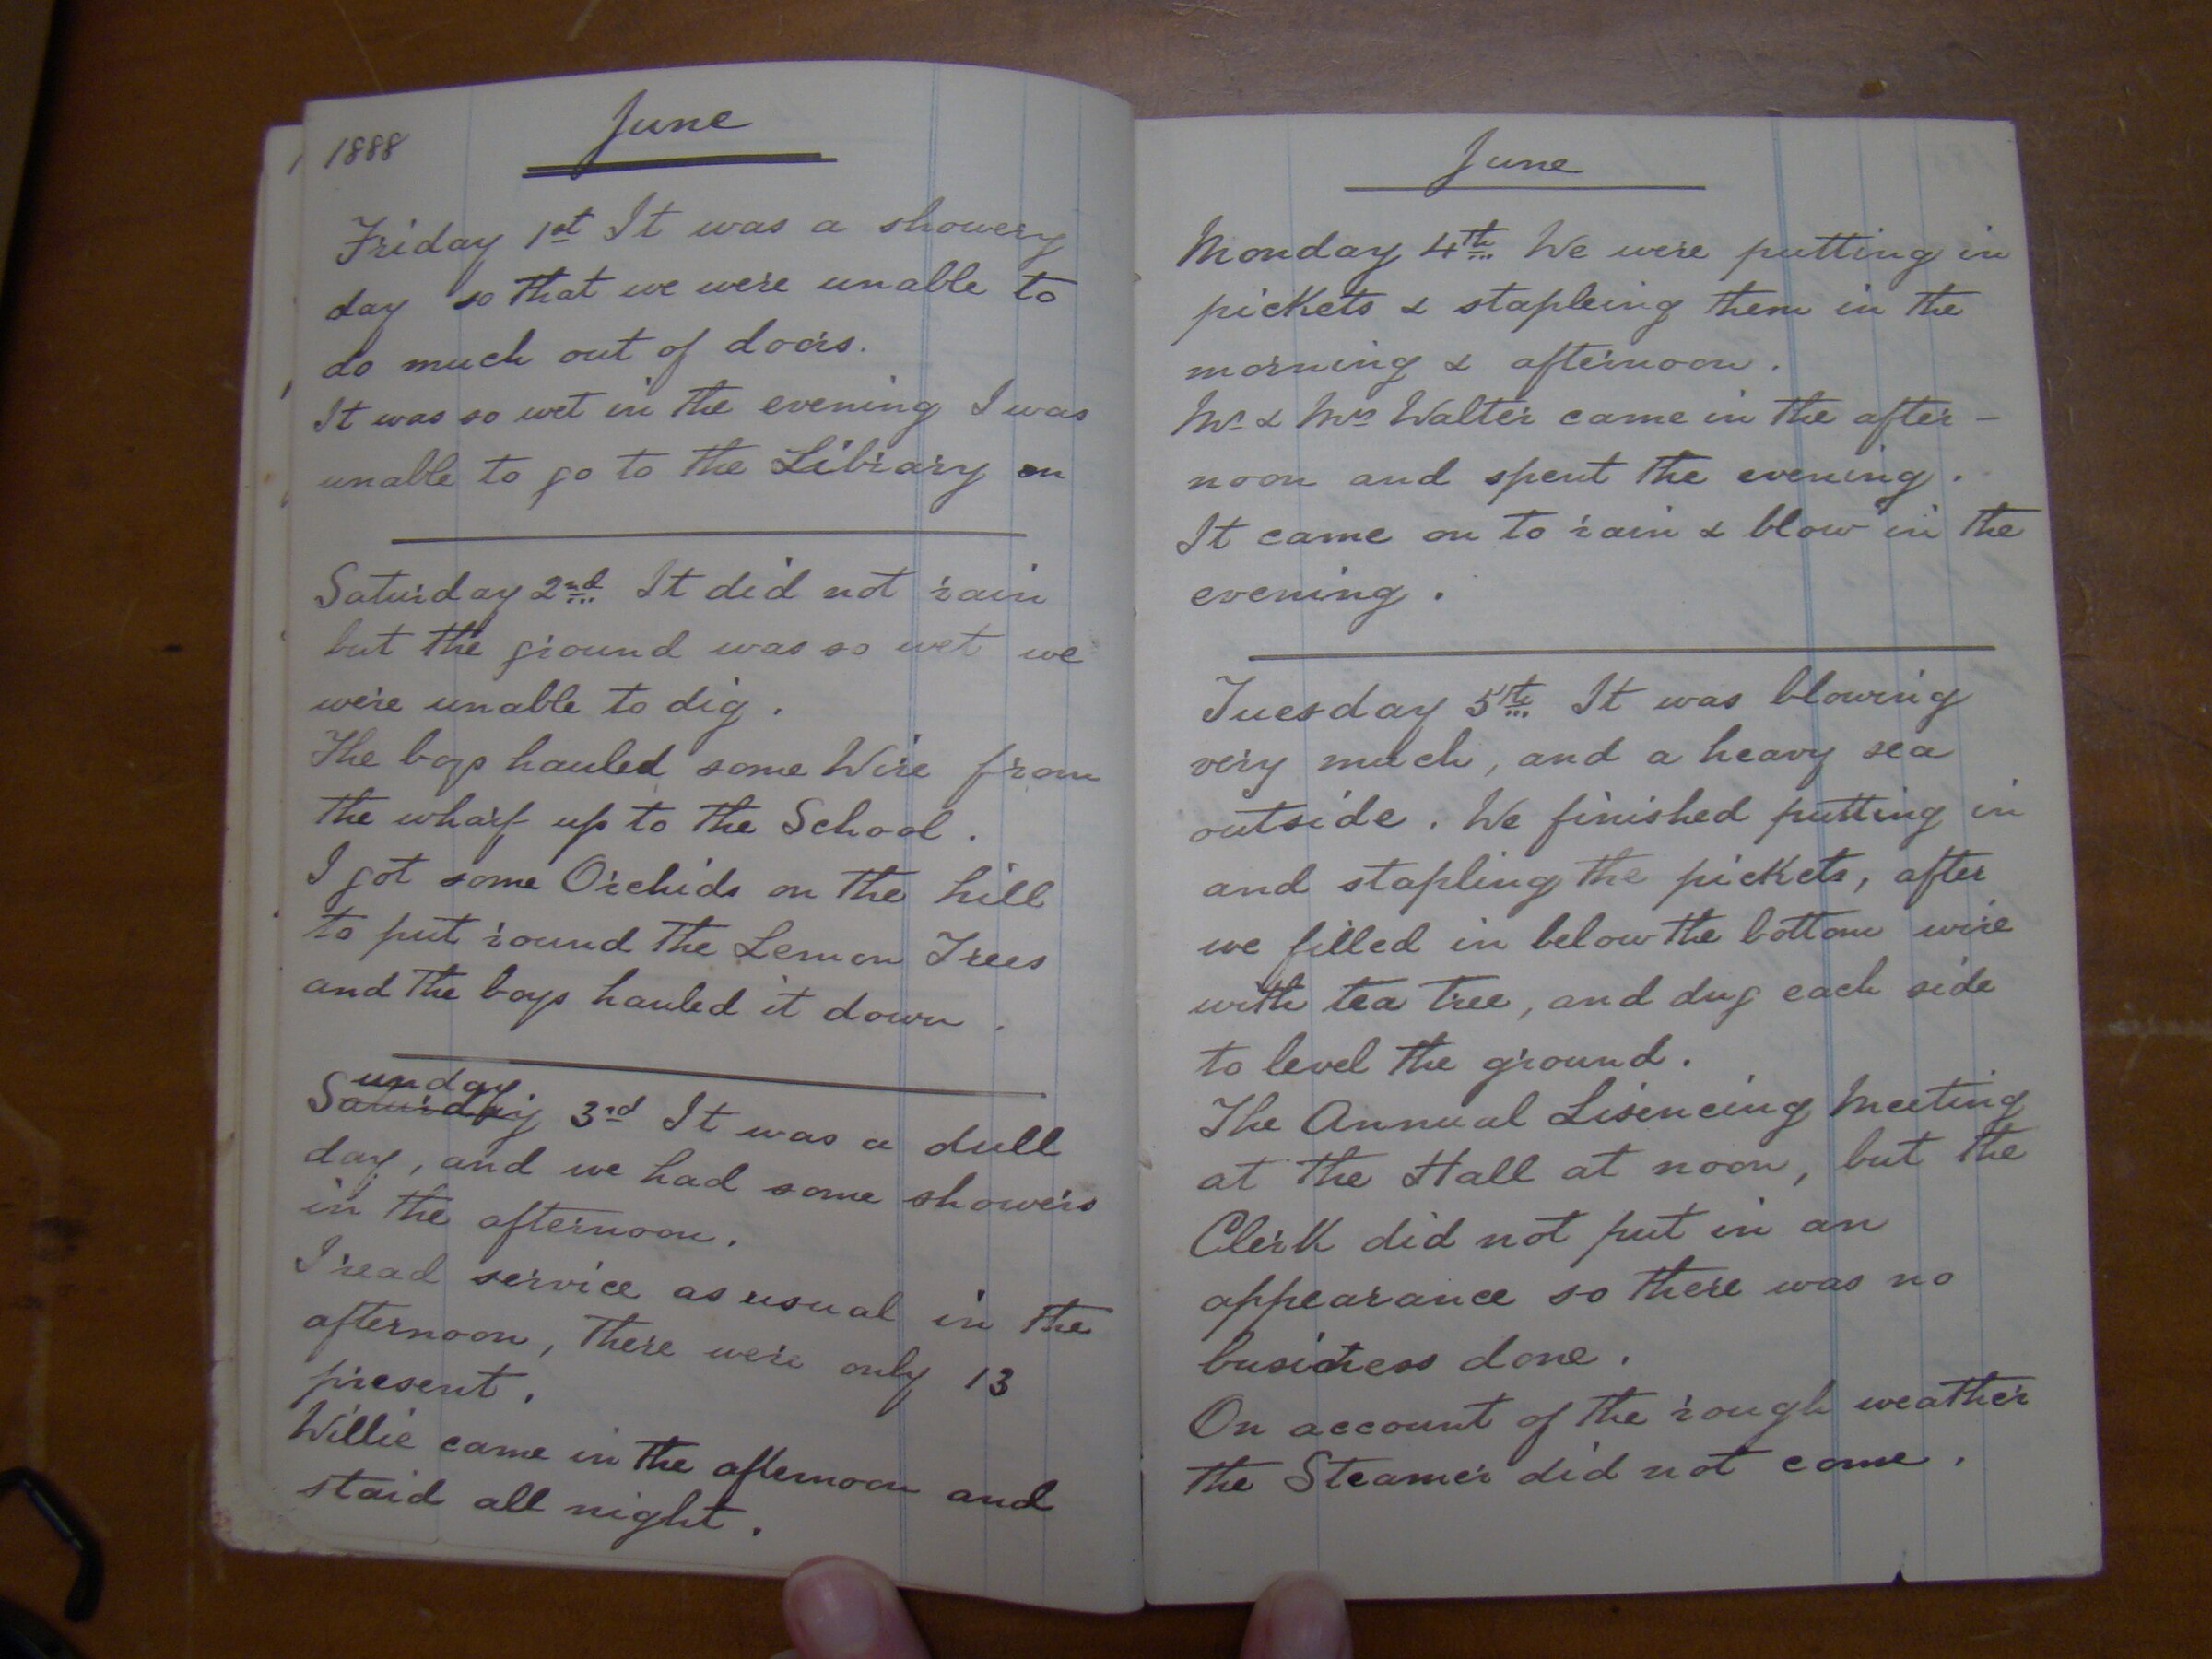 1888
June
Friday 1st It was a showery
day so that we were unable to
do much out of doors.
It was so wet in the evening I was
unable to go to the Library on
Saturday 2nd It did not rain
but the ground was so wet we
were unable to dig.
The boys hauled some Wire from
the wharf up to the School.
I got some Orchids on the hill
to put round the Lemon Trees
and the boys hauled it down.
Sunday 3rd It was a dull
day, and we had some showers
in the afternoon.
I read service as usual in the
afternoon, There were only 13
present.
Willie came in the afternoon and
staid all night.
June
Monday 4th We were putting in
pickets & stapleing them in the
morning & afternoon.
Mr & Mrs Walter came in the after-
noon and spent the evening.
It came on to rain & blow in the
evening.
Tuesday 5th It was blowing
very much, and a heavy sea
outside. We finished putting in
and stapling the pickets, after
we filled in below the bottom wire
with tea tree, and dug each side
to level the ground.
The Annual Lisencing Meeting
at the Hall at noon, but the
Clerk did not put in an
appearance so there was no
business done.
On account of the rough weather
the Steamer did not come.